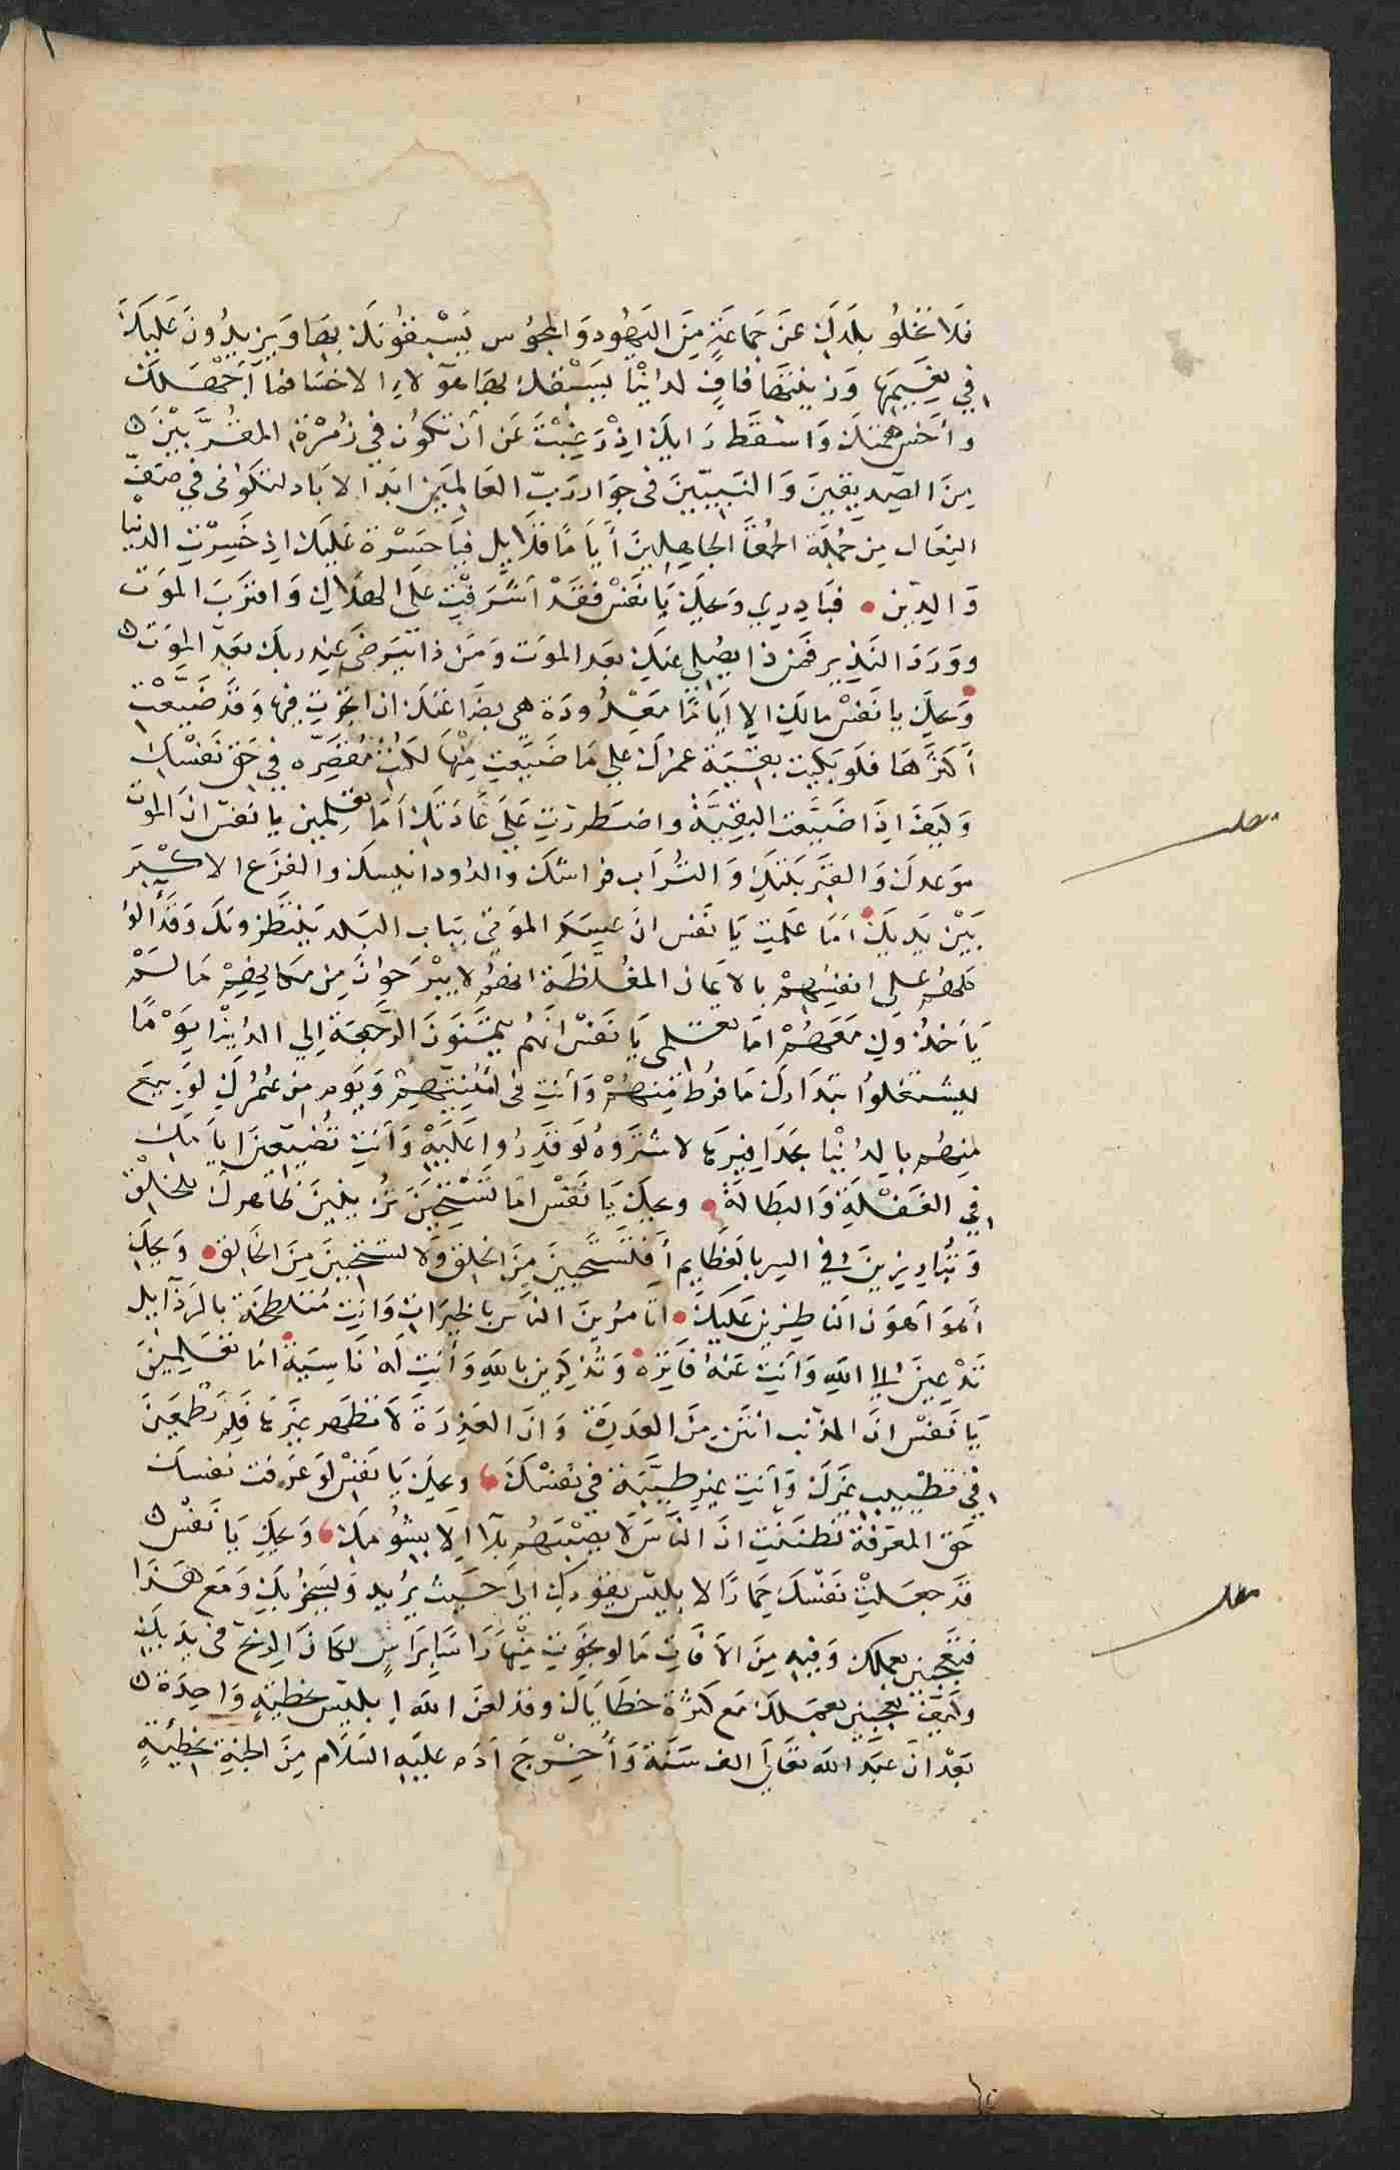 فلا تخلو بلدك عن جماعة من اليهود والمجوس يسبقونك بها ويزيدون عليك
في نعيمها وزينتها فاف لدنيا يسبقك بها هؤلاء الاخسا فما اجهلك
واخس همتك واسقط رايك اذ رغبت عن ان تكون في زمرة المقربين
من الصديقين والنبيين في جوار رب العالمين ابد الاباد لتكوني في صف
النعال من جملة الحمقا الجاهلين أياما قلايل فيا حسرة عليك اذ خسرت الدنيا
والدين • فبادري ويحك يا نفس فقد اشرفت على الهلاك واقترب الموت
وورد النذير فمن ذا يصلي عنك بعد الموت ومن ذا يترضى عنك ربك بعد الموت
ويحك يا نفس مالك الا اياما معدودة هي بضاعتك ان اتجرت فيها وقد ضيعت
أكثرها فلو بكيت بقية عمرك على ما ضيعت منها لكنت مقصره في حق نفسك
وكيف اذا ضيعت البقية واضطررت على عادتك أما تعلمين يا نفس ان الموت
موعدك والقبر بيتك والتراب فراشك والدود انيسك والفزع الاكبر
بين يديك • اما علمت يا نفس ان عسكر الموتى بباب البلد ينتظرونك وقد آلوا
كلهم على انفسهم بالايمان المغلظة انهم لا يبرحوان من مكانهم ما لم
يأخذوك معهم اما تعلمي يا نفس انهم يتمنون الرجعة الى الدنيا يوما
ليشتغلوا بتدارك ما فرط منهم وانت في امنيتهم ويوم من عمرك لو بيع
منهم بالدنيا بحذافيرها لاشتروه لو قدروا عليه وانت تضيعين ايامك
في الغفلة والبطالة • ويحك يا نفس اما تستحين تزينين ظاهرك للخلق
وتبارزين في السر بالعظايم أفتستحيين من الخلق ولا تستحيين من الخالق • ويحك
أهو اهون الناظرين عليك • أتامرين الناس بالخيرات وانت متلطخة بالرذايل
تدعين الى الله وأنت عنه فارة • وتذكرين بالله وأنت له ناسية • اما تعلمين
يا نفس ان المذنب انتن من العذرة وان العذرة لا تطهر غيرها فلم تطمعين
في تطييب غيرك وأنت غير طيبة في نفسك • ويحك يا نفس لو عرفت نفسك
حق المعرفة لظننت ان الناس لا يصيبهم بلاء الا بشؤمك • ويحك يا نفس
قد جعلت نفسك حمارا لابليس يقودك الى حيث يريد ويسخر بك ومع هذا
فتعجبين بعملك وفيه من الافات ما لو نجوت منها راسا براس لكان الربح في يديك
وكيف تعجبين بعملك مع كثرة خطاياك وقد لعن الله ابليس بخطية واحدة
بعد ان عبد الله تعالى الف سنة وأخرج ادم عليه السلام من الجنة بخطيئة